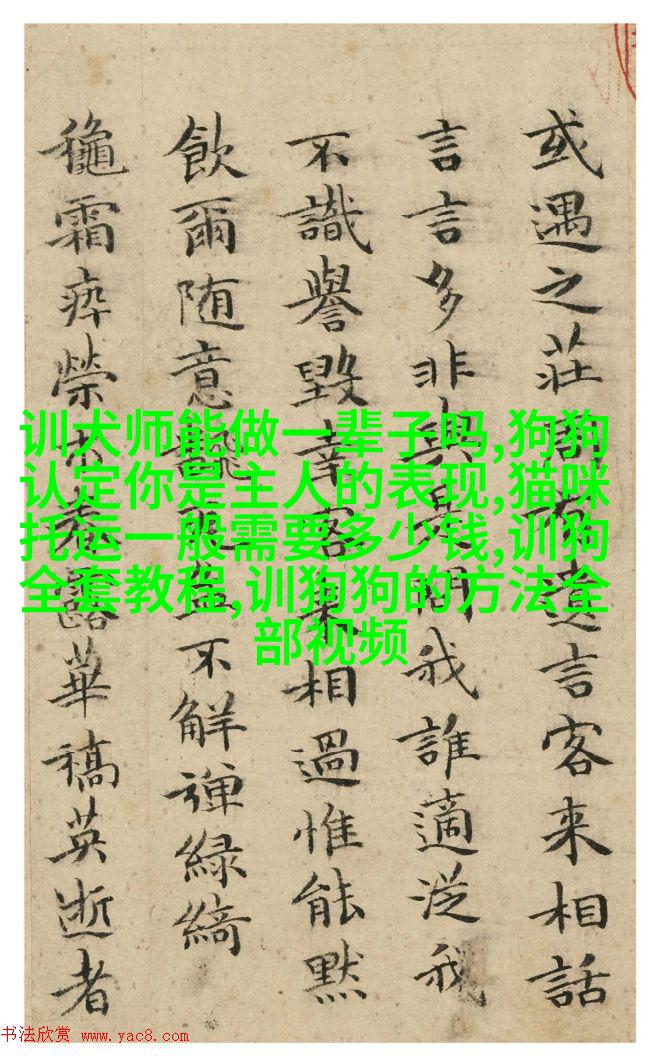 训犬师能做一辈子吗,狗狗
认定你是主人的表现,猫咪
托运一般需要多少钱,训狗
全套教程,训狗狗的方法全
部视频
或遇之莊遠言客来相話
言言多非我誰適従我
不識譽毀幸客相過惟能默
飲爾随意不解弹緑綺
穐霜瘁榮露華稿英逝者
书法欣赏 www.yac8.com